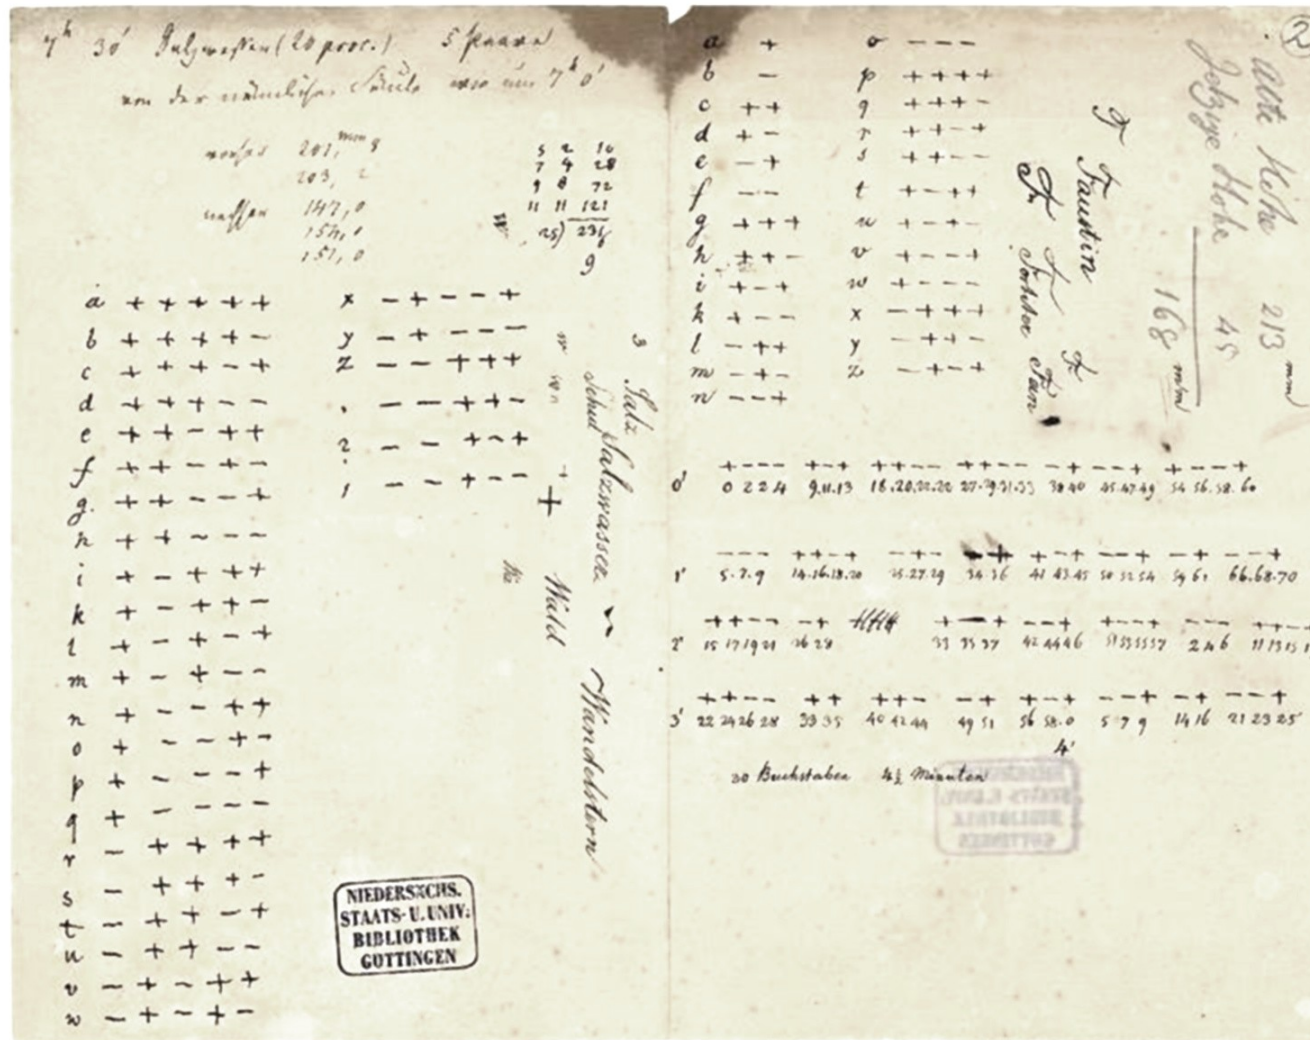 7ʰ 30' Salzwasser (20 proc.) 5 Paare
von der nämlichen Säule wie um 7ʰ 0'
vorher 201,ᵐᵐ 8
203, 2
nachher 147,0
154,0
151,0
7 4 28
9 8 72
11 11 121
25) 23
9
a + + + + +
b + + + + -
c + + + - +
d + + + - -
e + + - + +
f + + - + -
g. + + - - +
h + + - - -
i + - + + +
k + - + + -
l + - + - +
m + - + - -
n + - - + +
o + - - + -
p + - - - +
q + - - - -
r - + + + +
s - + + + -
t - + + - +
u - + + - -
v - + - + +
w - + - + -
x - + - - +
y - + - - -
z - - + + +
. - - + + -
? - - + - +
- - + - -
3
Salz
Schul Salzwasser
Wandelstern
+ Wald
NIEDERSÄCHS.
STAATS- U. UNIV.
BIBLIOTHEK
GÖTTINGEN
2
a +
b -
c + +
d + -
e - +
f - -
g + + +
h + + -
i + - +
k + - -
l - + +
m - + -
n - - +
o - - -
p + + + +
q + + + -
r + + - +
s + + - -
t + - + +
u + - - +
v + - - +
w + - - -
x - + + +
y - + +
z - + - +
F
F Faustin
F F
Fan
Alte Höhe 213 mm
Jetzige Höhe 45
168 mm
0' + - - - + - + + + - - + + - - - + - - - + + - - +
0 2 2 4 9.11.13 18.20.22.22 27.29.31.33 38 40 45.47.49 54 56.58.60
1' - - - + + - + - + - - + + - + - - + - + - - +
5.7.9 14.16.18.20 25.27.29 34.36 41 43.45 50 52 54 59 61 66.68.70
2' + + - - - + + - + - - + + - - - - - -
15 17 19 21 26 28 33 35 37 42 44 46 51 53 55 57 2 4 6 11 13 15
3' + + - - + + + + - - + + - + - - + - + - - +
22 24 26 28 33 35 40 42 44 49 51 56 58.0 5 7 9 14 16 21 23 25
4'
20 Buchstaben 4½ Minuten